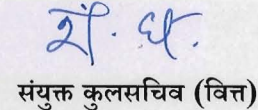 शं. ध.
संयुक्त कुलसचिव (वित्त)